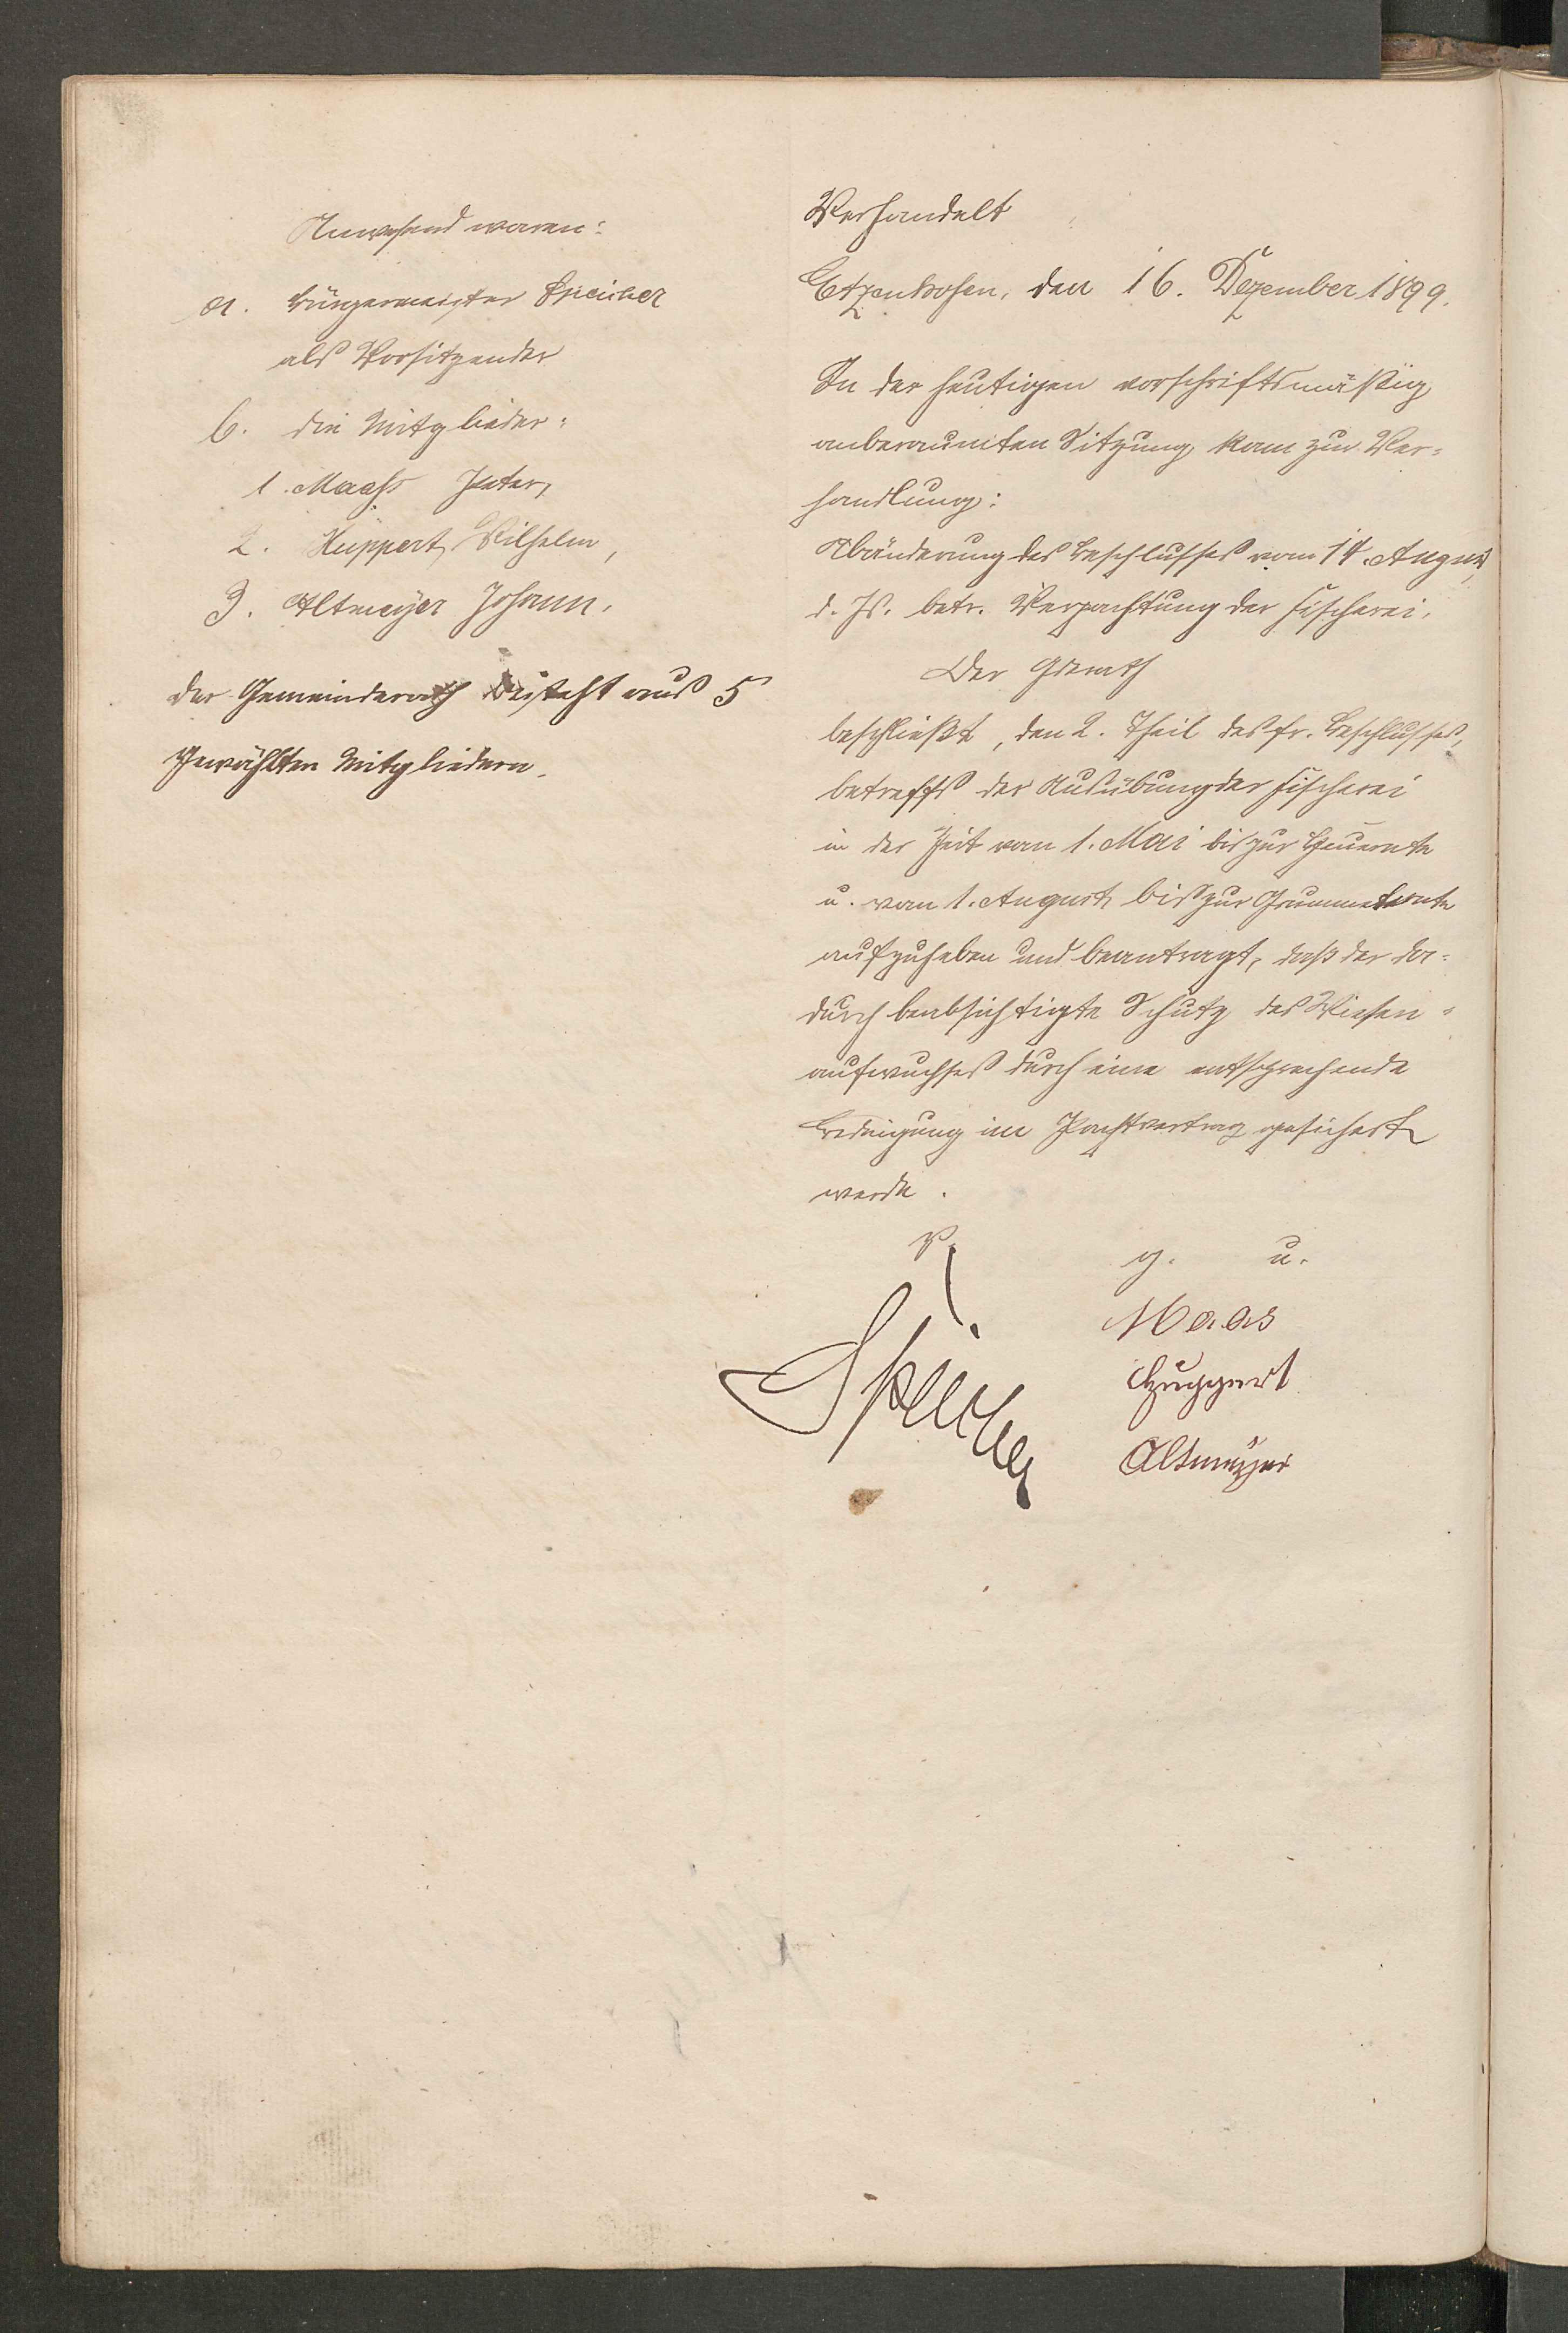 Anwesend waren:
a. Bürgermeister Speicher
als Vorsitzender
b. die Mitglieder:
1. Maaß Peter,
2. Huppert, Wilhelm,
3. Altmeyer Johann.
Der Gemeinderath besteht aus 5
gewählten Mitgliedern.
Verhandelt
Etzenhofen, den 16. Dezember 1899.
In der heutigen vorschriftsmäßig
anberaumten Sitzung kam zur Ver=
handlung:
Abänderung des Beschlusses vom 14. August
d. Js. betr. Verpachtung der Fischerei.
Der Gdrath
beschließt, den 2. Theil des fr. Beschlusses,
betreffs der Ausübung der Fischerei
in der Zeit vom 1. Mai bis zur Heuernte
u. vom 1. August bis zur Grummeternte
aufzuheben und beantragt, daß der da=
durch beabsichtigte Schutz des Wiesen=
aufwuchses durch eine entsprechende
Bedingung im Pachtvertrag gesichert
werde.
V. g. u.
Speicher
Maas
Huppert
Altmeyer